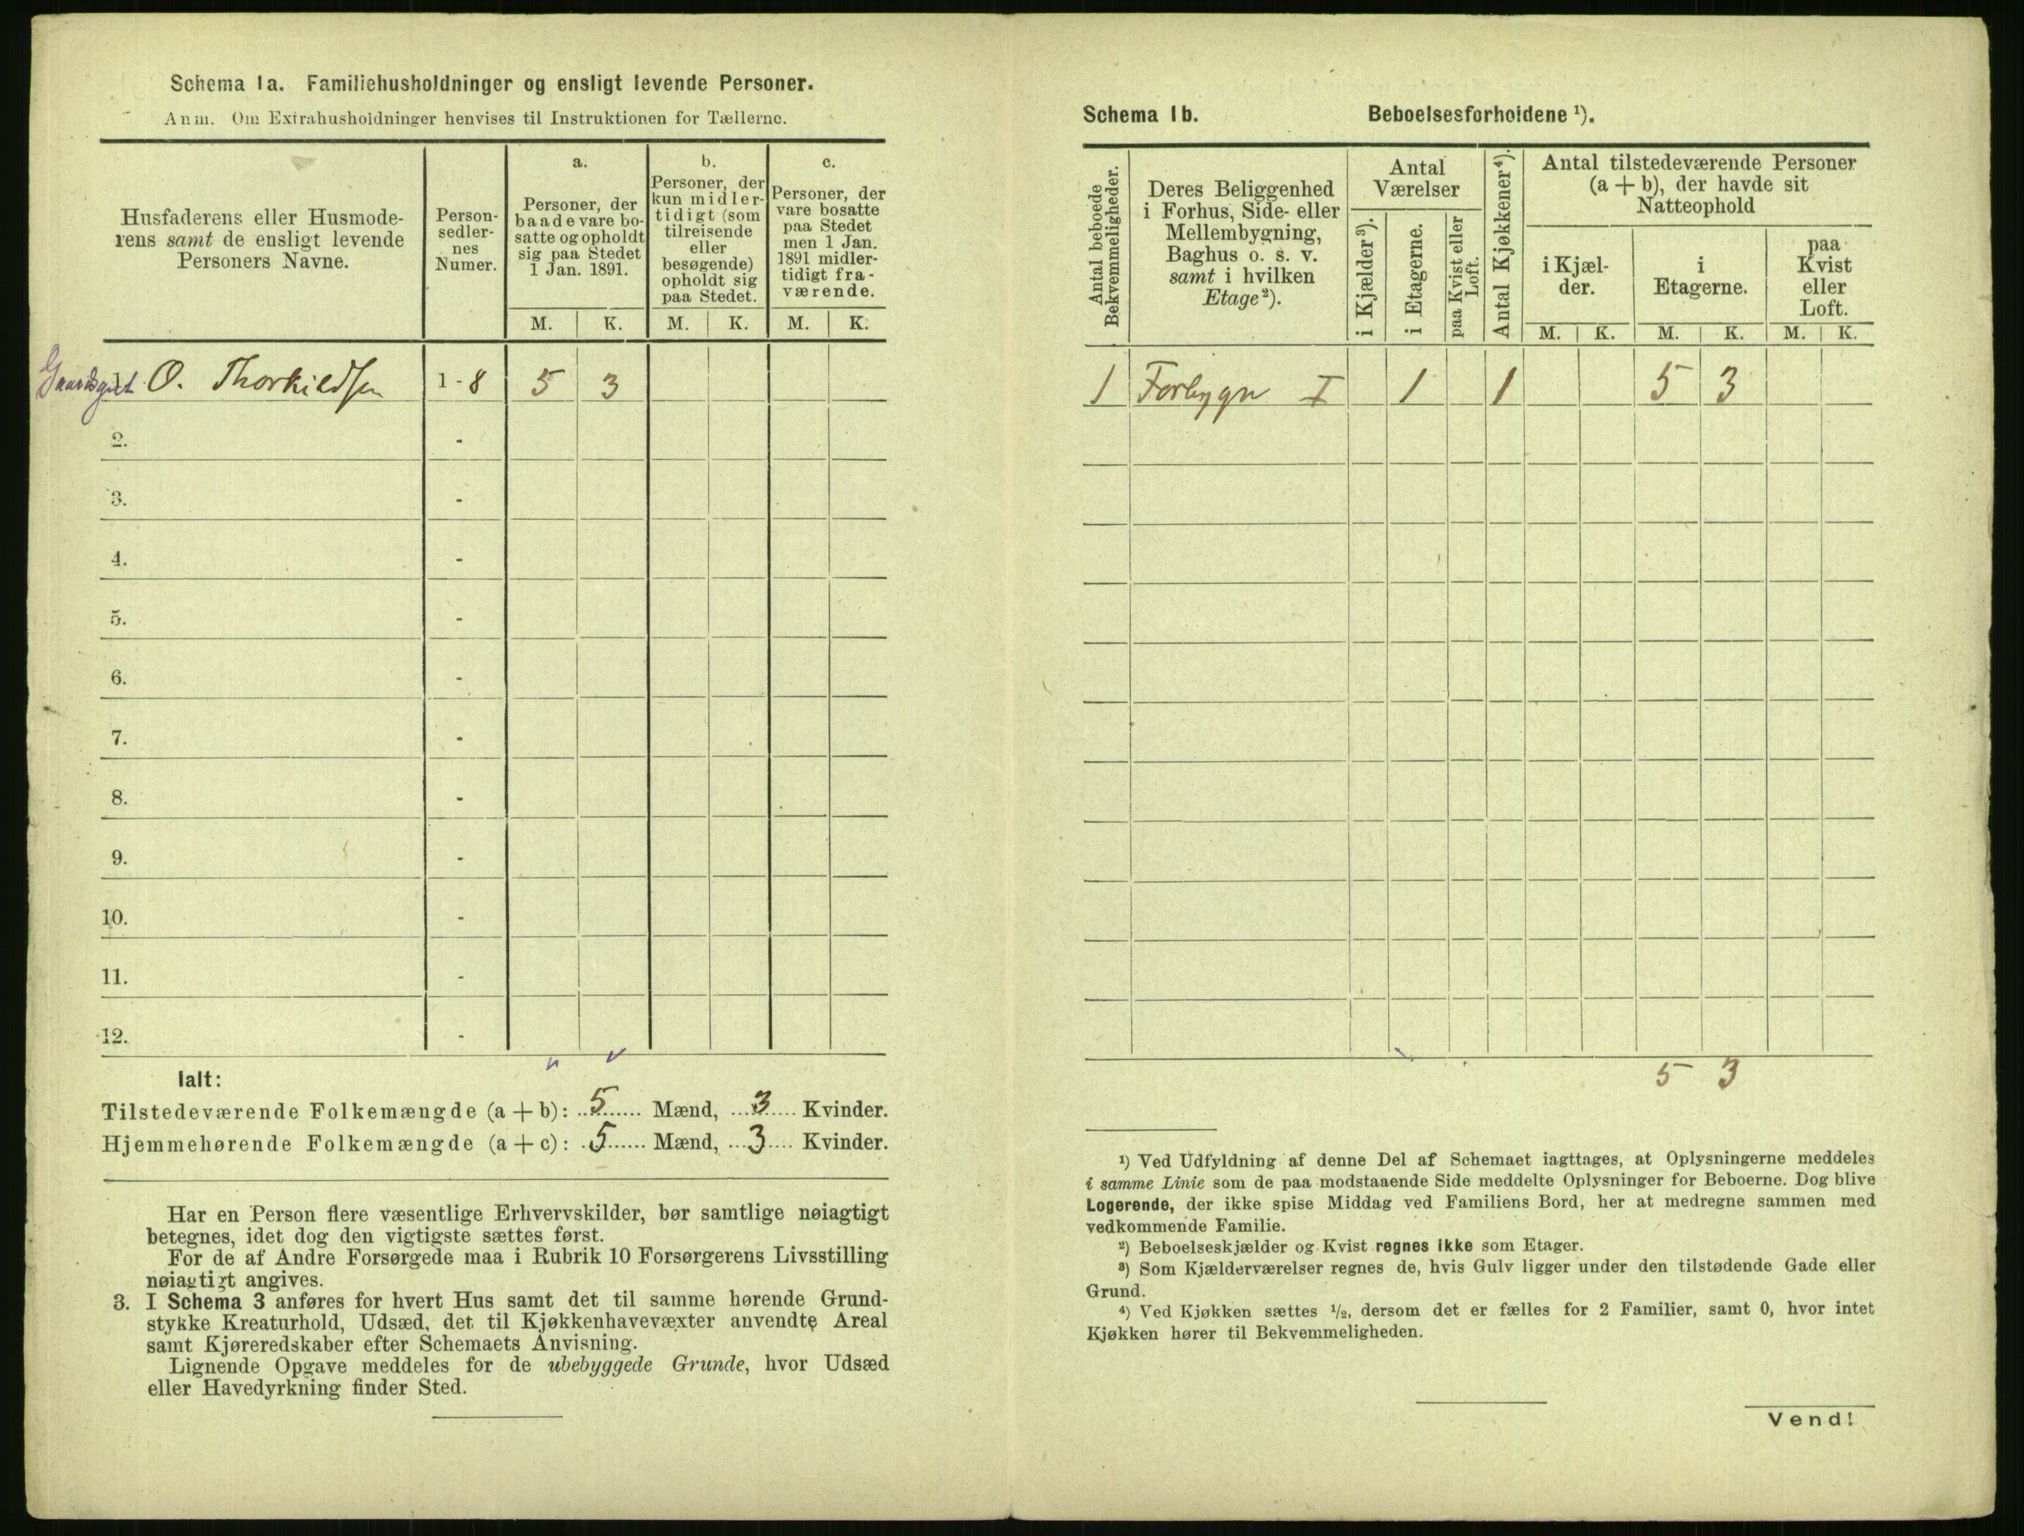 Schema 1a. Familiehusholdninger og ensligt levende Personer.
Anm. Om Extrahusholdninger henvises til Instruktionen for Tællerne.
Husfaderens eller Husmode-
rens samt de ensligt levende
Personers Navne.
Person-
sedler-
nes
Numer.
a.
Personer, der
baade vare bo-
satte og opholdt
sig paa Stedet
1 Jan. 1891.
M. K.
b.
Personer, der
kun midler-
tidigt (som
tilreisende
eller
besøgende)
opholdt sig
paa Stedet.
M. K.
c.
Personer, der
vare bosatte
paa Stedet
men 1 Jan.
1891 midler-
tidigt fra-
værende.
M. K.
O. Thorkildsen 1-8 5 3
2. -
3. -
4. -
5. -
6. -
7. -
8. -
9. -
10. -
11. -
12. -
Ialt:
Tilstedeværende Folkemængde (a + b): 5 Mænd, 3 Kvinder.
Hjemmehørende Folkemængde (a + c): 5 Mænd, 3 Kvinder.
Har en Person flere væsentlige Erhvervskilder, bør samtlige nøiagtigt
betegnes, idet dog den vigtigste sættes først.
For de af Andre Forsørgede maa i Rubrik 10 Forsørgerens Livsstilling
nøiagtigt angives.
3. I Schema 3 anføres for hvert Hus samt det til samme hørende Grund-
stykke Kreaturhold, Udsæd, det til Kjøkkenhavevæxter anvendte Areal
samt Kjøreredskaber efter Schemaets Anvisning.
Lignende Opgave meddeles for de ubebyggede Grunde, hvor Udsæd
eller Havedyrkning finder Sted.
Schema 1b. Beboelsesforholdene ¹).
Antal beboede
Bekvemmeligheder.
Deres Beliggenhed
i Forhus, Side- eller
Mellembygning,
Baghus o. s. v.
samt i hvilken
Etage ²).
Antal
Værelser
i Kjælder ³).
i Etagerne.
paa Kvist eller
Loft.
Antal Kjøkkener ⁴).
Antal tilstedeværende Personer
(a + b), der havde sit
Natteophold
i Kjæl-
der.
i
Etagerne.
paa
Kvist
eller
Loft.
M. K. M. K. M. K.
1 Forbygn I 1 1 5 3
5 3
¹) Ved Udfyldning af denne Del af Schemaet iagttages, at Oplysningerne meddeles
i samme Linie som de paa modstaaende Side meddelte Oplysninger for Beboerne. Dog blive
Logerende, der ikke spise Middag ved Familiens Bord, her at medregne sammen med
vedkommende Familie.
²) Beboelseskjælder og Kvist regnes ikke som Etager.
³) Som Kjælderværelser regnes de, hvis Gulv ligger under den tilstødende Gade eller
Grund.
⁴) Ved Kjøkken sættes ½, dersom det er fælles for 2 Familier, samt 0, hvor intet
Kjøkken hører til Bekvemmeligheden.
Vend!